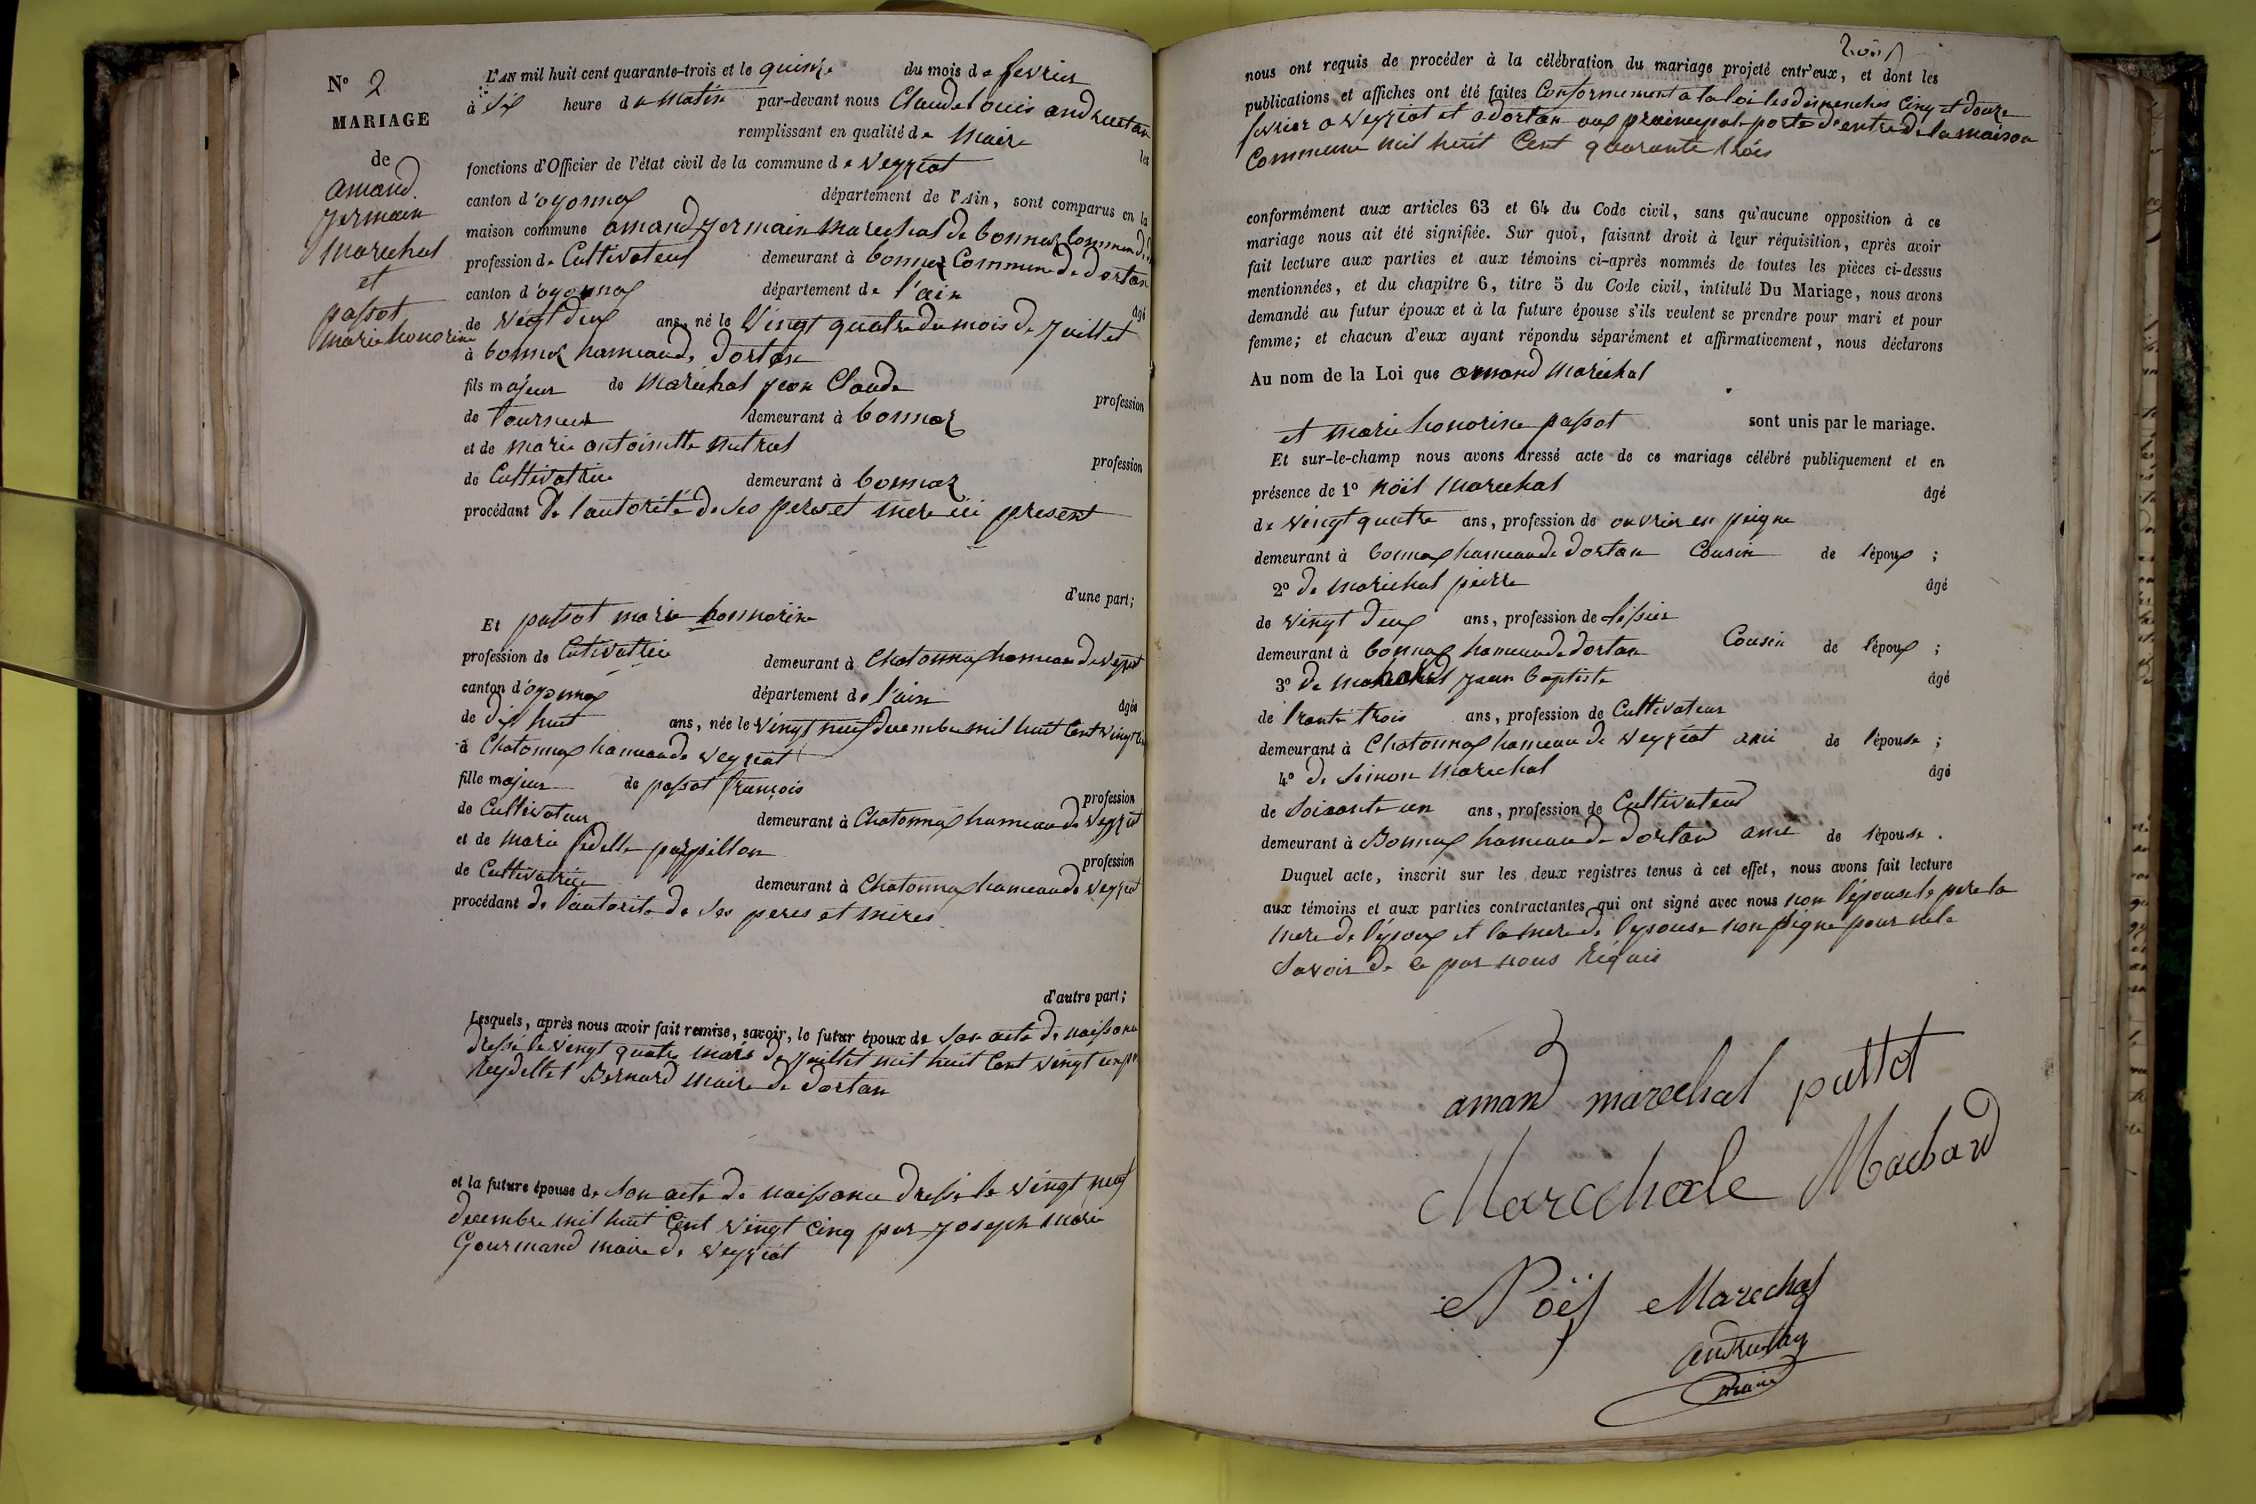 Nº 2
MARIAGE
de
amand
germain
marechal
et
passot
marie honorine
L'AN mil huit cent quarante-trois et le quinze du mois de fevrier
à six heure du matin par-devant nous Claude Louis andruetan
remplissant en qualité de Maire les
fonctions d'Officier de l'état civil de la commune de Veyziat
canton d'oyonnax département de l'Ain, sont comparus en la
maison commune amand germain marechal de bonnaz Commune de
profession de Cultivateur demeurant à bonnaz Commune de dortan
canton d'oyonnax département de l'ain âgé
de vingt deux ans, né le Vingt quatre du mois de juillet
à bonnaz hameau de dortan
fils majeur de Maréchal jean Claude profession
de tourneur demeurant à bonnaz
et de marie antoinette mutral profession
de Cultivatrice demeurant à bonnaz
procédant De l'autorité de ses peres et mere ici present
d'une part;
Et passot marie honnorine
profession de Cutivatrice demeurant à Chatonnax hameau de veyziat
canton d'oyonnax département de l'ain âgée
de dix huit ans, née le vingt neuf decembre mil huit Cent vingt
à Chatonnax hameau de veyziat
fille majeur de passot françois profession
de Cultivateur demeurant à Chatonnax hameau de veyziat
et de marie fidelle pappillon profession
de Cultivatrice demeurant à Chatonnax hameau de veyziat
procédant de l'autorite de ses peres et mères
d'autre part;
Lesquels, après nous avoir fait remise, savoir, le futur époux de son acte de naissance
dressé le vingt quatre mois de juillet mil huit Cent vingt un par
Reydellet Bernard maire de dortan
et la future épouse de son acte de naissance dressé le vingt neuf
decembre mil huit Cent vingt Cinq par joseph marie
Gourmand maire de veyziat
nous ont requis de procéder à la célébration du mariage projeté entr'eux, et dont les
publications et affiches ont été faites Conformement a la loi les dimenches Cinq et douze
fevrier a veyziat et a dortan aux prinncipale porte d'entre de la maison
Commune mil huit Cent quarante trois
conformément aux articles 63 et 64 du Code civil, sans qu'aucune opposition à ce
mariage nous ait été signifiée. Sur quoi, faisant droit à leur réquisition, après avoir
fait lecture aux parties et aux témoins ci-après nommés de toutes les pièces ci-dessus
mentionnées, et du chapitre 6, titre 5 du Code civil, intitulé Du Mariage, nous avons
demandé au futur époux et à la future épouse s'ils veulent se prendre pour mari et pour
femme; et chacun d'eux ayant répondu séparément et affirmativement, nous déclarons
Au nom de la Loi que amand Maréchal
et marie honorine passot sont unis par le mariage.
Et sur-le-champ nous avons dressé acte de ce mariage célébré publiquement et en
présence de 1º noël Marechal âgé
de vingt quatre ans, profession de ouvrier en peigne
demeurant à bonnaz hameau de dortan Cousin de l'époux ;
2º de marichal pierre âgé
de vingt deux ans, profession de
demeurant à bonnaz hameau de dortan Cousin de l'époux ;
3º de jean baptiste âgé
de trante trois ans, profession de Cultivateur
demeurant à Chatonnax hameau de veyziat ami de l'épouse ;
4º de Simon Marechal âgé
de Soixante un ans, profession de Cultivateur
demeurant à Bonnaz hameau de dortan ami de l'épouse .
Duquel acte, inscrit sur les deux registres tenus à cet effet, nous avons fait lecture
aux témoins et aux parties contractantes qui ont signé avec nous non l'épouse le pere la
mere de l'époux et la mere de l'epouse non signe pour ne le
savoir de ce par nous réquis
amand marechal passot
Marechale Machard
Noël Marechal
andruetan
maire